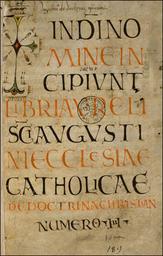 IN D͞I NO
MINE IN
CIPIUNT
LIBRI AURELI
SC̄I AUGUSTI
NI ECCLESIAE
CATHOLICAE
DE DOCTRINA CHRISTIAN
NUMERO · IIII